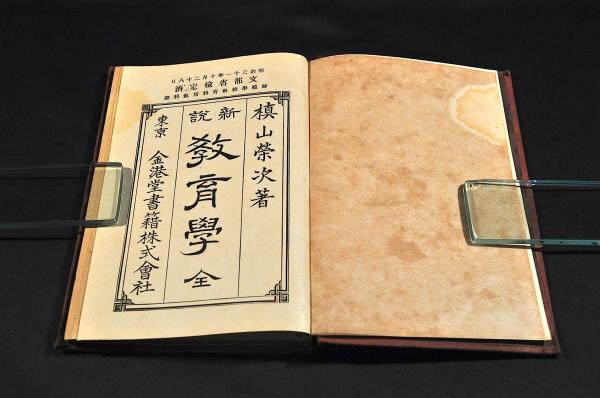 明治三十一年十月二十八日
文部省檢定濟
師範學校教育科用教科書
槙山榮次著
新說
教育學 全
東京 金港堂書籍株式會社